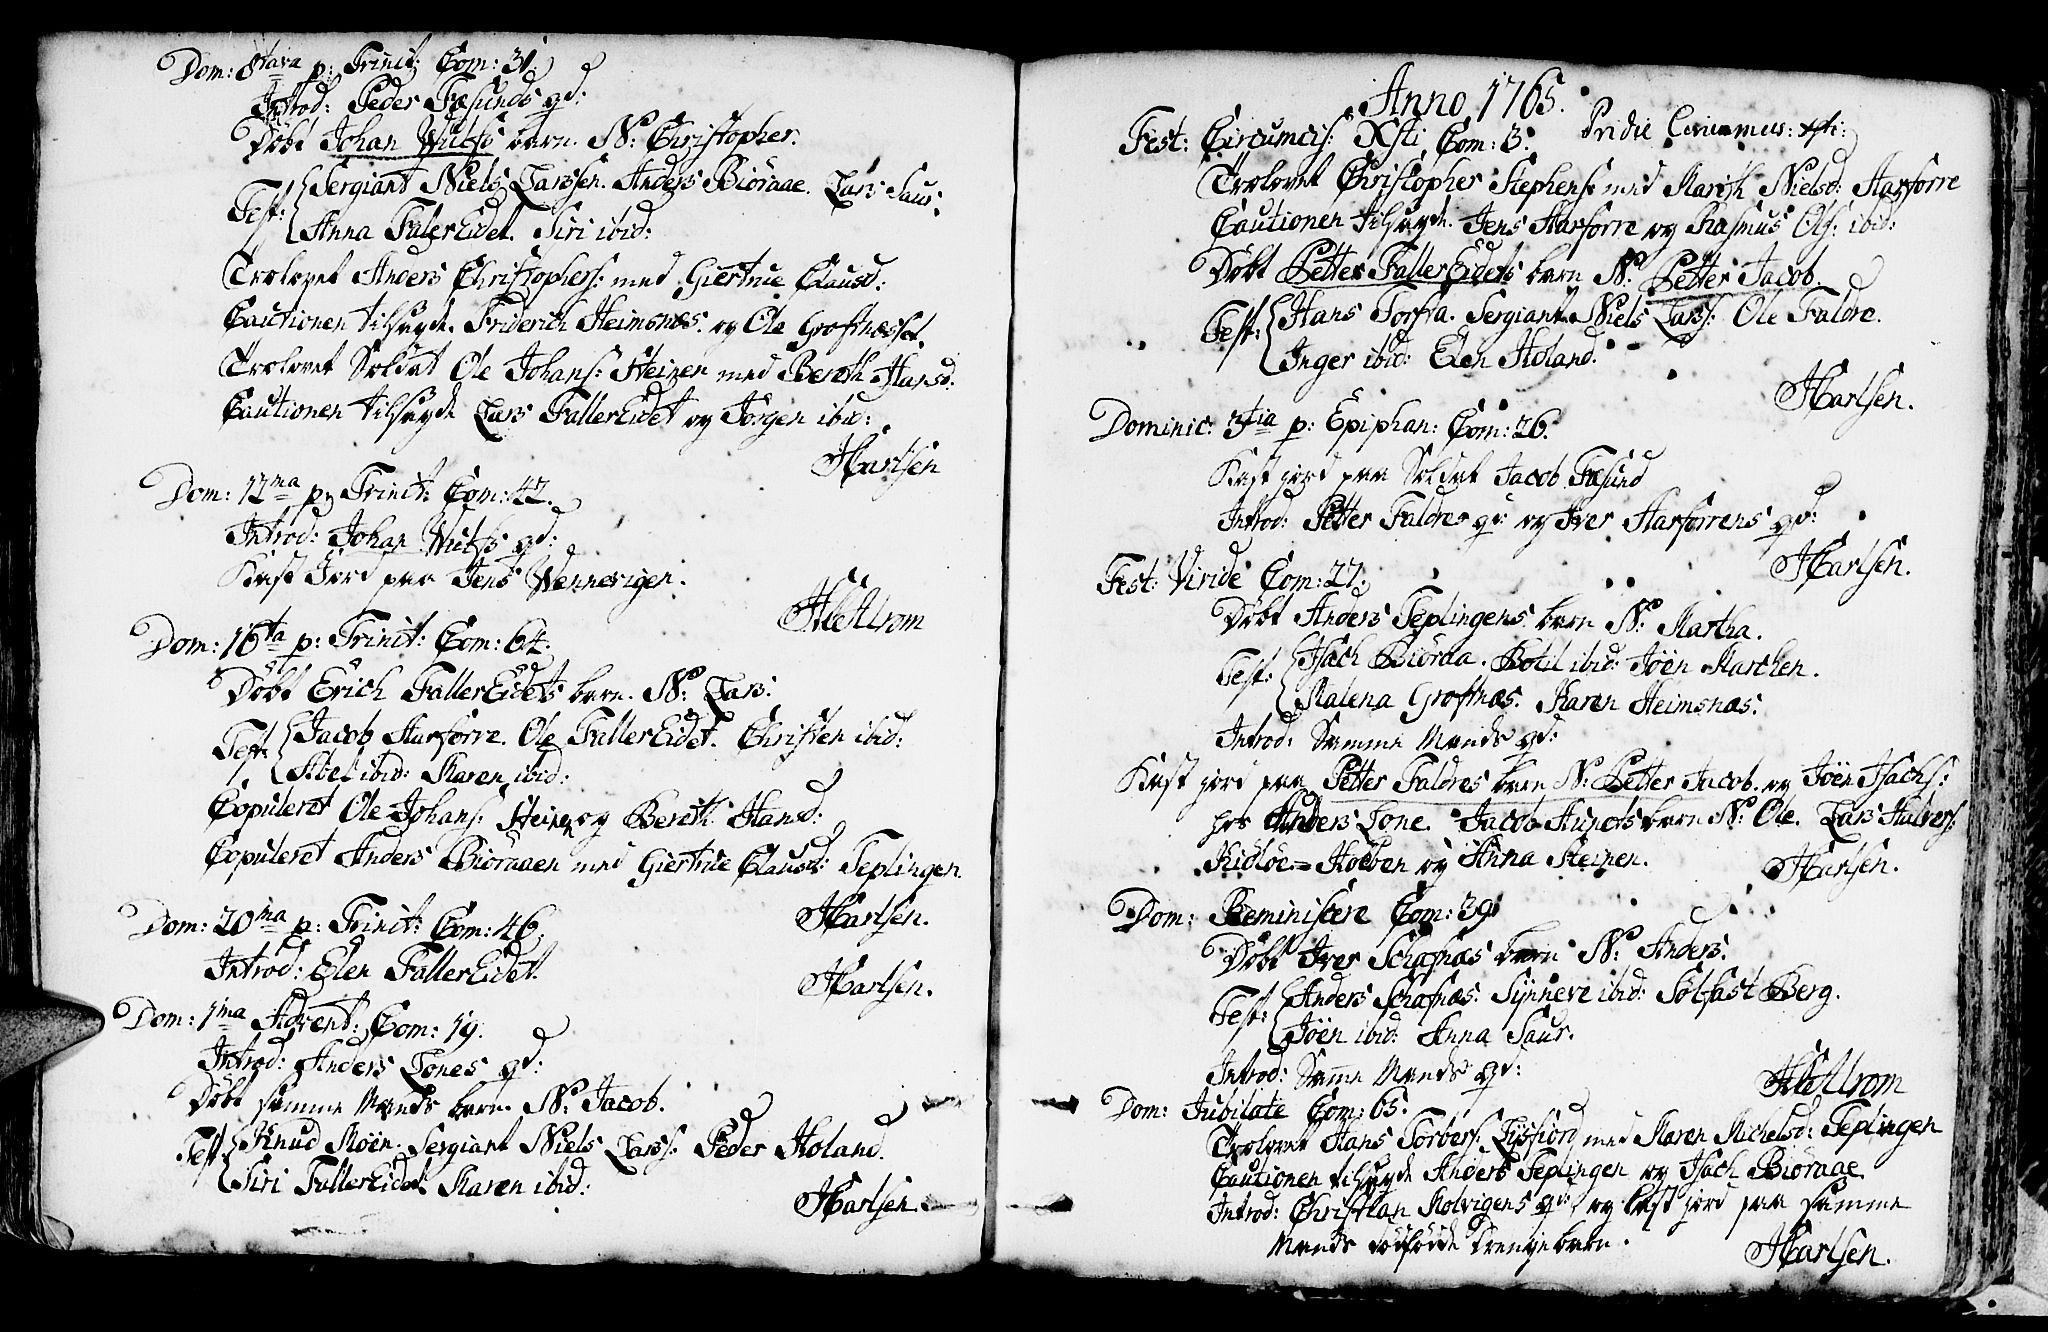 Dom: 8tava p: Trinit: Com: 31.
Introd: Peder Fæsunds qd:
Döbt Johan Wulfs barn. N: Christopher.
Test: Sergiant Niels Larssen. Anders Biöraae. Lars Saur.
Anna FallerEidet. Siri ibid:
Trolovet Anders Christophers: med Giertrue Clausd:
Cautionen tilsagde Friderich Heimsnæs. og Ole Grofnæsset.
Trolovet Soldat Ole Johans: Steinen med Bereth Hansd:
Cautionen tilsagde Lars FallerEidet og Jörgen ibid:
HCarlsen
Dom: 12ma p: Trinit: Com: 42.
Introd: Johan Wulfs qd:
Kast Jord paa Jens Wennevigen.
Dom: 16ta p: Trinit: Com: 64.
Döbt Erich FallerEidets barn. N: Lars.
Test: Jacob Harsforre. Ole FallerEidet. Christen ibid:
Abel ibid: Karen ibid:
Copuleret Ole Johans: Steinen og Bereth Hansd:
Copuleret Anders Biöraaen med Giertrue Clausd: Teplingen.
HCarlsen.
Dom: 20ma p: Trinit: Com: 46.
Introd: Elen FallerEidet.
HCarlsen.
Dom: 1ma Advent: Com: 19.
Introd: Anders Lones qd:
Döbt samme Mands barn. N: Jacob.
Test: Knud Moen. Sergiant Niels Larss: Peder Holand.
Siri FallerEidet Karen ibid:
HCarlsen
Anno 1765.
Fest: Circumcis: Xsti Com: 3. Pridie
Trolovet Christopher Stephens: med Mareth Nielsd: Harsforre
Cautionen tilsagde. Jens Harsforre og Rasmus Ols: ibid:
Döbt Petter FallerEidets barn N: Petter Jacob.
Test: Hans Torfra. Sergiant Niels Larss: Ole Faldre.
Inger ibid: Elen Holand.
HCarlsen.
Dominic: 3tia p: Epiphan: Com: 26.
Kast jord paa Soldat Jacob Fæsund
Introd: Petter Faldres qd: og Iver Harsforrens qd:
HCarlsen.
Fest: Viride Com: 27.
Döbt Anders Teplingens barn N: Martha.
Test: Isach Biöraa. Botil ibid: Joen Marchen.
Malena Grofnæs. Karen Heimsnæs.
Introd: Samme Mands qd:
Kast jord paa Petter Faldres barn N: Petter Jacob. og Joen Isachs:
hos Anders Lone. Jacob Hunots barn N: Ole. Lars Halvers:
Kidlöe-Kolben og Anna Steinen.
HCarlsen.
Dom: Reminiscere Com: 39.
Döbt Iver Schafnæs barn N: Anders.
Test: Anders Schafnæs. Synneve ibid: Solfast Berg.
Joen ibid: Anna Saur.
Introd: Samme Mands qd:
Dom: Jubilate Com: 65.
Trolovet Hans Torbers: Lysfiord med Karen Michelsd: Teplingen
Cautionen tilsagde Anders Teplingen og Isach Biöraae
Introd: Christian Kolvigens qd: og kast jord paa samme
Mands dödfödde drengebarn.
HCarlsen.